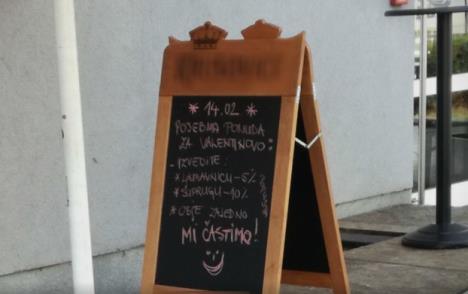 * 14.02 *
POSEBNA PONUDA
ZA VALENTINOVO:
- IZVEDITE:
* LJUBAVNICU - 5%
* SUPRUGU - 10%
* OBJE ZAJEDNO
MI ČASTIMO!